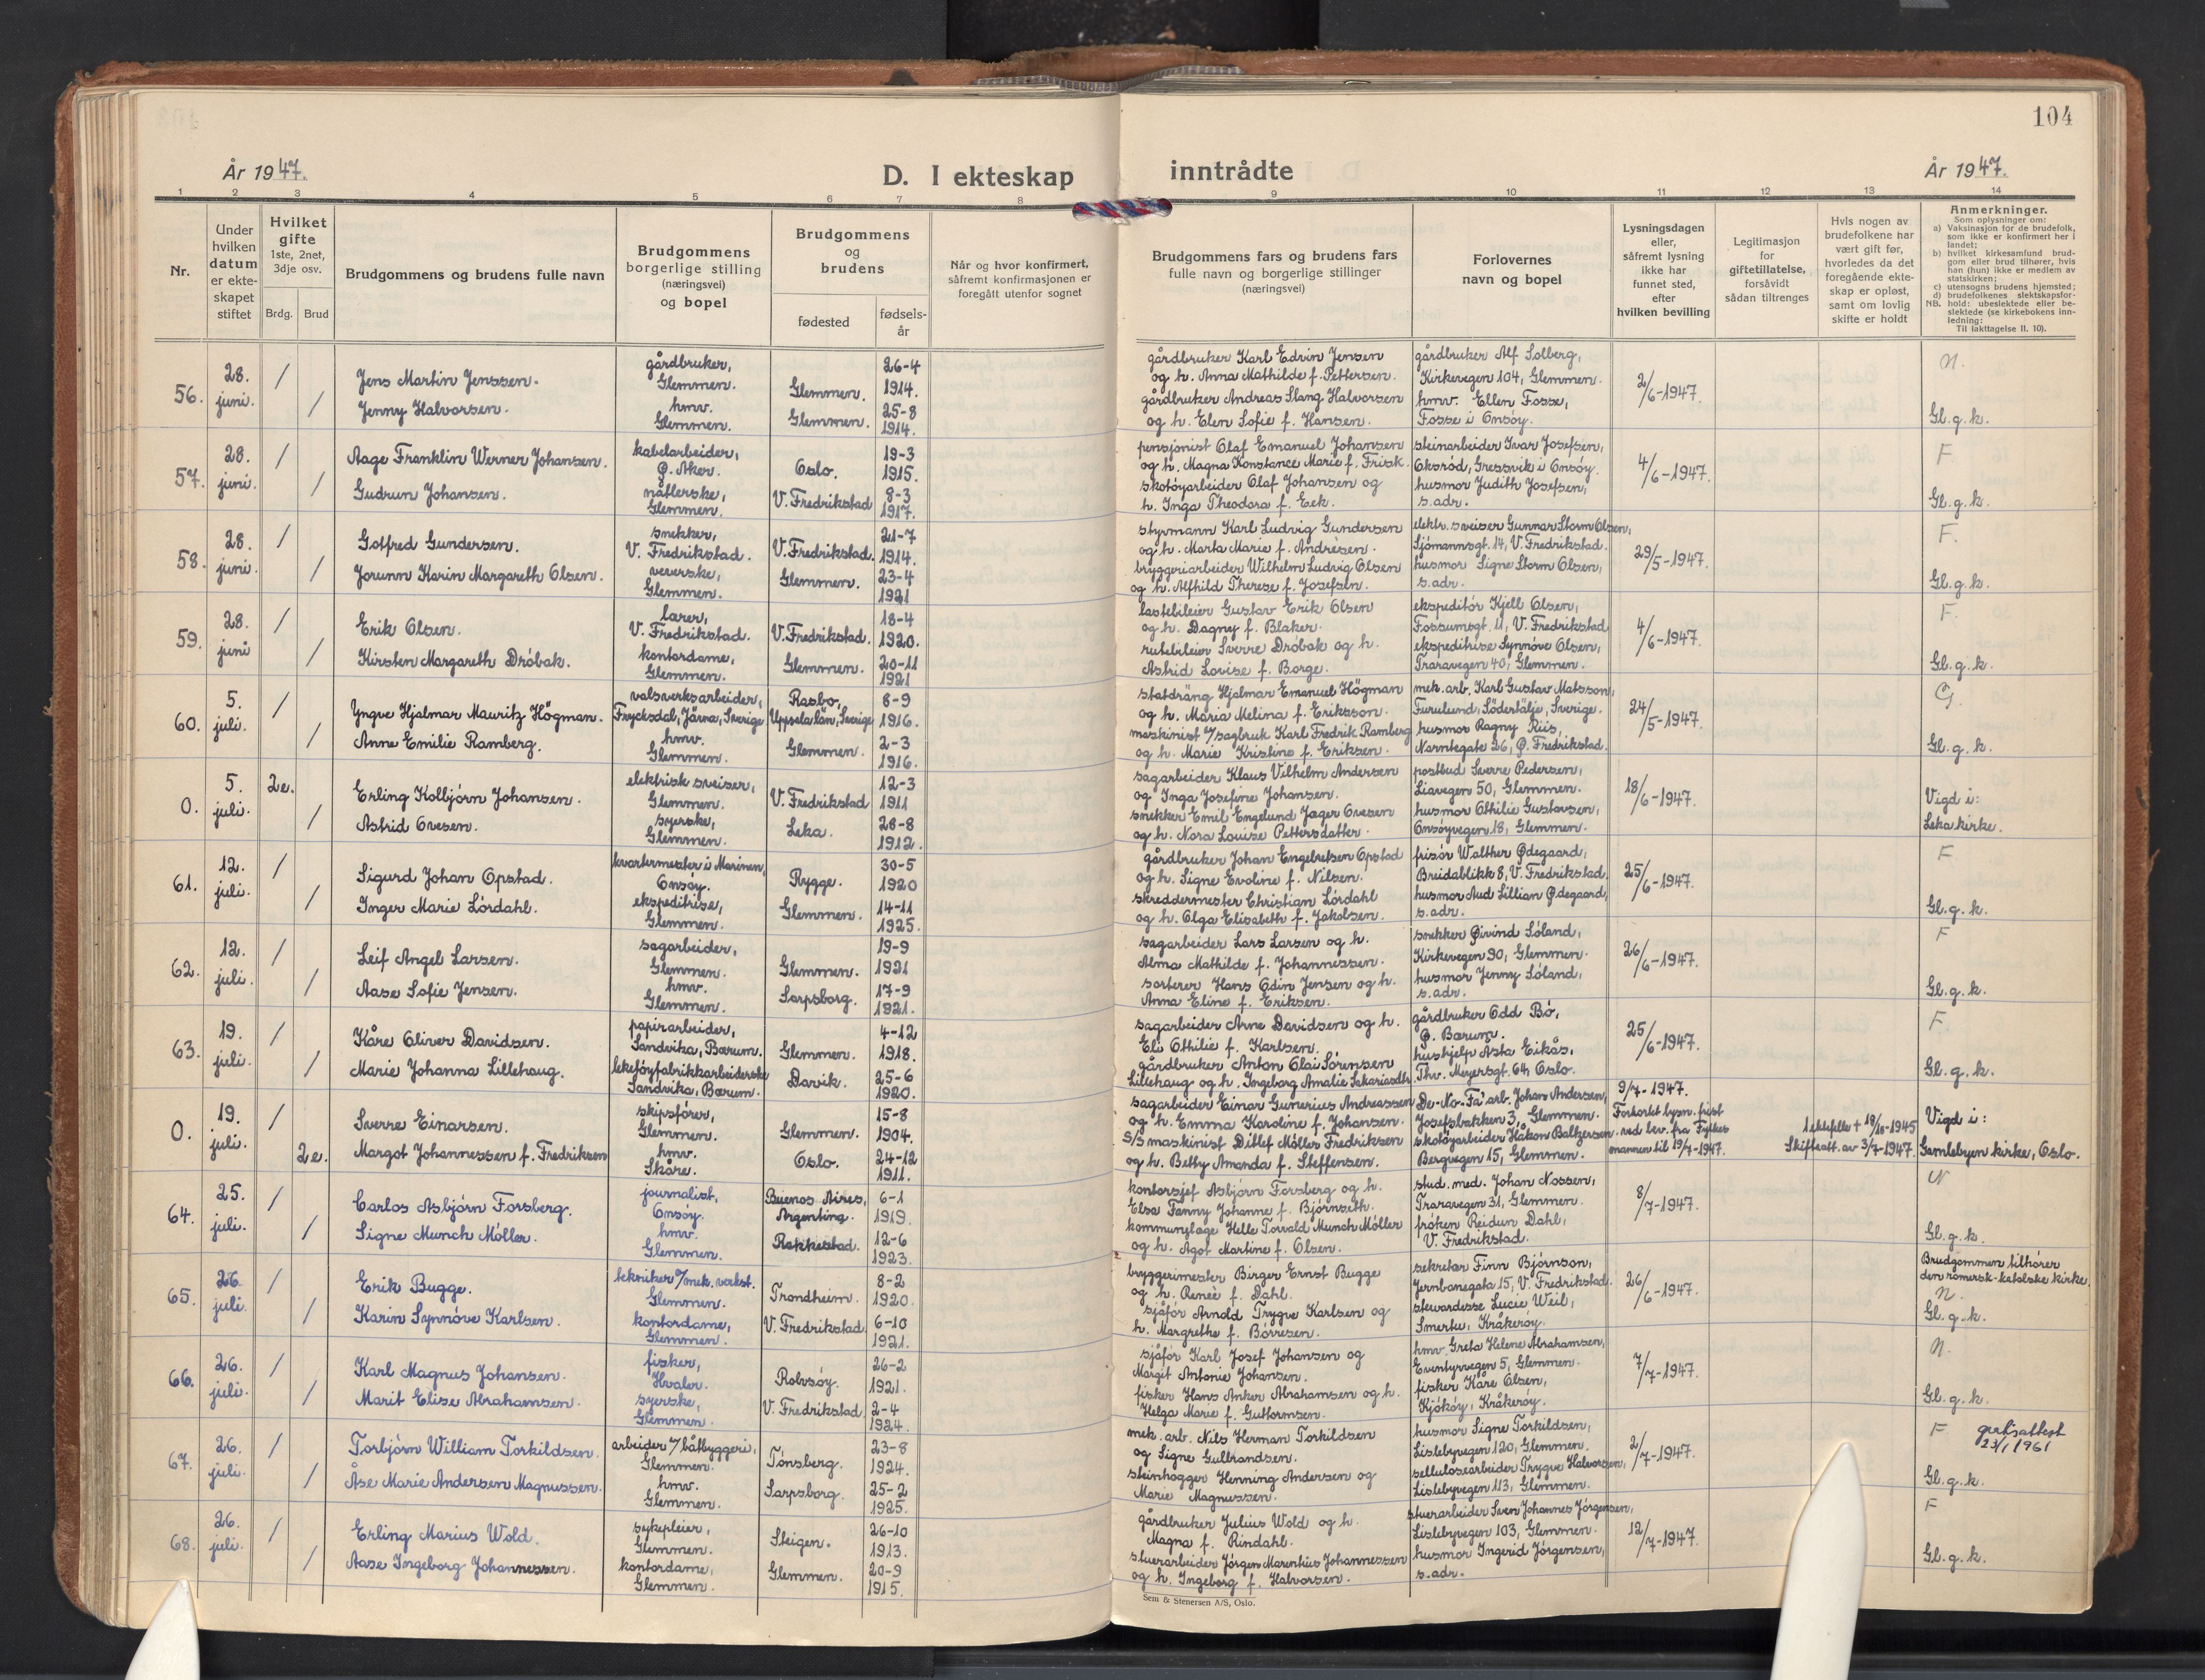 104
År 1947.
D. I ekteskap inntrådte
År 1947.
1 2 3 4 5 6 7 8 9 10 11 12 13 14
Nr.
Under hvilken datum er ekteskapet stiftet
Hvilket gifte 1ste, 2net, 3dje osv.
Brdg. Brud
Brudgommens og brudens fulle navn
Brudgommens borgerlige stilling (næringsvei) og bopel
Brudgommens og brudens
fødested
fødselsår
Når og hvor konfirmert, såfremt konfirmasjonen er foregått utenfor sognet
Brudgommens fars og brudens fars fulle navn og borgerlige stillinger (næringsvei)
Forlovernes navn og bopel
Lysningsdagen eller, såfremt lysning ikke har funnet sted, efter hvilken bevilling
Legitimasjon for giftetillatelse, forsåvidt sådan tiltrenges
Hvis nogen av brudefolkene har vært gift før, hvorledes da det foregående ekteskap er opløst, samt om lovlig skifte er holdt
Anmerkninger.
Som oplysninger om:
a) Vaksinasjon for de brudefolk, som ikke er konfirmert her i landet;
b) hvilket kirkesamfund brudgom eller brud tilhører, hvis han (hun) ikke er medlem av statskirken;
c) utensogns brudens hjemsted;
d) brudefolkenes slektskapsforhold: ubeslektede eller beslektede (se kirkebokens innledning:
NB. Til iakttagelse II. 10).
56. 28. juni. / /
Jens Martin Jenssen.
Jenny Halvorsen.
gårdbruker, Glemmen.
hmv. Glemmen.
Glemmen. 26-4 1914.
Glemmen. 25-8 1914.
gårdbruker Karl Edvin Jensen
og h. Anna Mathilde f. Pettersen.
gårdbruker Andreas Slang Halvorsen
og h. Elen Sofie f. Hansen.
gårdbruker Alf Solberg,
Kirkevegen 104, Glemmen.
hmv. Ellen Fosse,
Fosse i Onsöy.
2/6-1947.
N.
Gl. g. k.
57. 28. juni. / /
Aage Franklin Werner Johansen.
Gudrun Johansen.
kabelarbeider, Ø. Aker.
nåtlerske, Glemmen.
Oslo. 19-3 1915.
V. Fredrikstad 8-3 1917.
pensjonist Olaf Emanuel Johansen
og h. Magna Konstance Marie f. Frisk.
skotöyarbeider Olaf Johansen og
h. Inga Theodora f. Eek.
steinarbeider Ivar Josefsen,
Oksröd, Gressvik i Onsöy.
husmor Judith Josefsen,
s. adr.
4/6-1947.
F
Gl. g. k.
58. 28. juni. / /
Gotfred Gundersen.
Jorunn Karin Margareth Olsen.
snekker, V. Fredrikstad.
veverske, Glemmen.
V. Fredrikstad. 21-7 1914.
Glemmen. 23-4 1921
styrmann Karl Ludvig Gundersen
og h. Marta Marie f. Andrèsen.
bryggeriarbeider Wilhelm Ludvig Olsen
og h. Alfhild Therese f. Josefsen.
elektr. sveiser Gunnar Storm Olsen,
Sjömannsgt. 14, V. Fredrikstad.
husmor Signe Storm Olsen,
s. adr.
29/5-1947.
F.
Gl. g. k.
59. 28. juni / /
Erik Olsen.
Kirsten Margareth Dröbak.
lærer, V. Fredrikstad.
kontordame, Glemmen.
V. Fredrikstad. 18-4 1920.
Glemmen. 20-11 1921
lastebileier Gustav Erik Olsen
og h. Dagny f. Blaker.
rutebileier Sverre Dröbak og h.
Astrid Lovise f. Borge.
ekspeditör Kjell Olsen,
Fossumsgt. 11, V. Fredrikstad
ekspeditrise Synnöve Olsen,
Traravegen 40, Glemmen.
4/6-1947.
F.
Gl. g. k.
60. 5. juli. / /
Yngve Hjalmar Mauritz Högman.
Anne Emilie Ramberg.
valsverksarbeider, Frycksdal, Järna, Sverige
hmv. Glemmen.
Rasbo, Uppsala län, Sverige 8-9 1916.
Glemmen. 2-3 1916.
statdräng Hjalmar Emanuel Högman
og h. Maria Melina f. Eriksson.
maskinist v/sagbruk Karl Fredrik Ramberg
og h. Marie Kristine f. Eriksen.
mek. arb. Karl Gustav Matsson,
Furulund, Södertälje, Sverige.
husmor Ragny Riis,
Narntegate 26, Ø. Fredrikstad.
24/5-1947.
G.
Gl. g. k.
0. 5. juli. 2e. /
Erling Kolbjörn Johansen.
Astrid Ovesen.
elektrisk sveiser, Glemmen.
syerske, Glemmen.
V. Fredrikstad 12-3 1911
Leka. 28-8 1912.
sagarbeider Klaus Vilhelm Andersen
og Inga Josefine Johansen.
snekker Emil Engelund Jager Ovesen
og h. Nora Louise Pettersdatter.
postbud Sverre Pedersen,
Liavegen 50, Glemmen.
husmor Othilie Gustavsen,
Onsöyvegen 18, Glemmen.
18/6-1947.
Vigd i:
Leka kirke.
61. 12. juli. / /
Sigurd Johan Opstad.
Inger Marie Lördahl.
kvartermester i Marinen, Onsöy.
ekspeditrise, Glemmen.
Rygge. 30-5 1920
Glemmen. 14-11 1925.
gårdbruker Johan Engelretsen Opstad
og h. Signe Evoline f. Nilsen.
skreddermester Christian Lördahl
og h. Olga Elisabeth f. Jakobsen.
frisör Walther Ødegaard,
Breidablikk 8, V. Fredrikstad.
husmor Aud Lillian Ødegaard,
s. adr.
25/6-1947.
F
Gl. g. k.
62. 12. juli. / /
Leif Angel Larsen.
Aase Sofie Jensen.
sagarbeider, Glemmen.
hmv. Glemmen.
Glemmen. 19-9 1921
Sarpsborg. 17-9 1921.
sagarbeider Lars Larsen og h.
Alma Mathilde f. Johannessen.
sorterer Hans Odin Jensen og h.
Anna Eline f. Eriksen.
snekker Øivind Söland,
Kirkevegen 90, Glemmen.
husmor Jenny Söland,
s. adr.
26/6-1947.
F
Gl. g. k.
63. 19. juli. / /
Kåre Oliver Davidsen.
Marie Johanna Lillehaug.
papirarbeider, Sandvika, Bærum.
leketöyfabrikkarbeiderske Sandvika, Bærum.
Glemmen. 4-12 1918.
Davik. 25-6 1920.
sagarbeider Arne Davidsen og h.
Eli Othilie f. Karlsen.
gårdbruker Anton Olai Sörensen
Lillehaug og h. Ingeborg Amalie Sakariasdtr.
gårdbruker Odd Bö,
Ø. Bærum.
hushjelp Asta Eikås,
Thv. Meyersgt. 64, Oslo.
25/6-1947.
F.
Gl. g. k.
0. 19. juli. / 2e.
Sverre Einarsen.
Margot Johannessen f. Fredriksen
skipsförer, Glemmen.
hmv. Skåre.
Glemmen. 15-8 1904.
Oslo. 24-12 1911.
sagarbeider Einar Gunerius Andreassen
og h. Emma Karoline f. Johansen.
S/S maskinist Ditlef Möller Fredriksen
og h. Betty Amanda f. Steffensen.
De-No-Fa' arb. Johan Andersen,
Josefsbakken 3, Glemmen.
skotöyarbeider Håkon Baltzersen
Bergvegen 15, Glemmen.
9/7-1947.
Forkortet lysn. frist
ved bev. fra Fylkesmannen til 19/7-1947.
1 ektefelle + 18/10-1945
Skifteatt. av 3/7-1947.
Vigd i:
Gamlebyen kirke, Oslo.
64. 25. juli. / /
Carlos Asbjörn Forsberg.
Signe Munch Möller.
journalist, Onsöy.
hmv. Glemmen.
Buenos Aires, Argentina. 6-1 1919.
Rakkestad. 12-6 1923.
kontorsjef Asbjörn Forsberg og h.
Elsa Fanny Johanne f. Björnseth.
kommunelæge Helle Torvald Munch Möller
og h. Agot Martine f. Olsen.
stud. med. Johan Nossen,
Traravegen 31, Glemmen.
fröken Reidun Dahl,
V. Fredrikstad.
8/7-1947.
N
Gl. g. k.
65. 26. juli. / /
Erik Bugge.
Karin Synnöve Karlsen.
tekniker v/mek. verkst. Glemmen.
kontordame, Glemmen.
Trondheim. 8-2 1920.
V. Fredrikstad 6-10 1921.
bryggerimester Birger Ernst Bugge
og h. Reneè f. Dahl.
sjåför Arnold Trygve Karlsen og
h. Margrethe f. Börresen.
sekretær Finn Björnson,
Jernbanegata 15, V. Fredrikstad.
stewardesse Lucie Weil,
Smertu, Kråkeröy.
26/6-1947.
Brudgommen tilhører
den romersk-katolske kirke.
N.
Gl. g. k.
66. 26. juli. / /
Karl Magnus Johansen.
Marit Elise Abrahamsen.
fisker, Hvaler.
syerske, Glemmen.
Rolvsöy. 26-2 1921.
V. Fredrikstad 2-4 1924.
sjåför Karl Josef Johansen og
Margit Antonie Johansen.
fisker Hans Anker Abrahamsen og h.
Helga Marie f. Guttormsen.
hmv. Greta Helene Abrahamsen,
Eventyrvegen 5, Glemmen.
fisker Kåre Olsen,
Kjököy, Kråkeröy.
7/7-1947.
N.
Gl. g. k.
67. 26. juli. / /
Torbjörn William Torkildsen.
Åse Marie Andersen Magnussen.
arbeider v/båtbyggeri, Glemmen.
hmv. Glemmen.
Tönsberg. 23-8 1924.
Sarpsborg. 25-2 1925.
mek. arb. Nils Herman Torkildsen
og Signe Gulbrandsen.
steinhogger Henning Andersen og
Marie Magnussen.
husmor Signe Torkildsen,
Lislebyvegen 120, Glemmen.
sellulosearbeider Trygve Halvorsen,
Lislebyvegen 113, Glemmen.
2/7-1947.
F gratisattest 23/1 1961
Gl. g. k.
68. 26. juli. / /
Erling Marius Wold.
Aase Ingeborg Johannessen.
sykepleier, Glemmen.
kontordame, Glemmen.
Steigen. 26-10 1913.
Glemmen. 20-9 1915.
gårdbruker Julius Wold og h.
Magna f. Rindahl.
stuerarbeider Jörgen Marentius Johannessen
og h. Ingeborg f. Halvorsen.
stuerarbeider Sven Johannes Jörgensen,
Lislebyvegen 103, Glemmen.
husmor Ingerid Jörgensen,
s. adr.
12/7-1947.
F
Gl. g. k.
Sem & Stenersen A/S, Oslo.